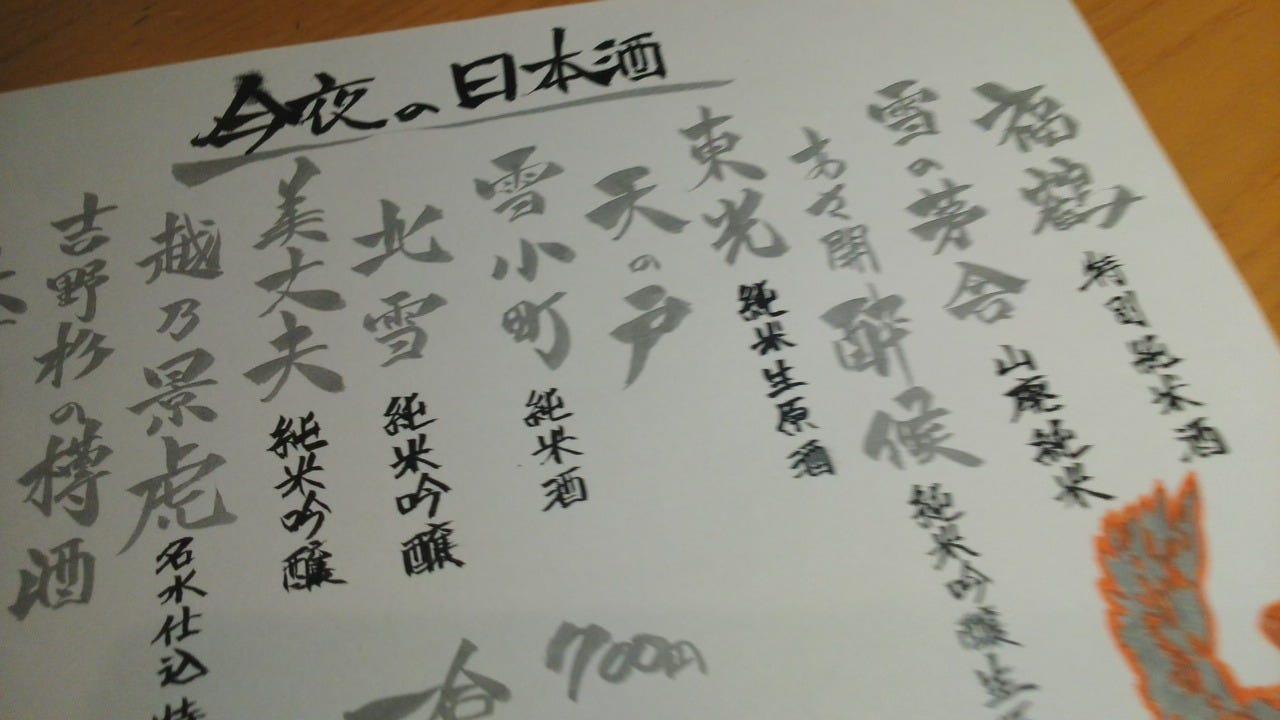 今夜の日本酒
福鶴 特別純米酒
雪の茅舎 山廃純米
あさ開 酔候 純米吟醸生
東光 純米生原酒
天の戸
雪小町 純米酒
北雪 純米吟醸
美丈夫 純米吟醸
越乃景虎 名水仕込 特
吉野杉の樽酒
一合 700円